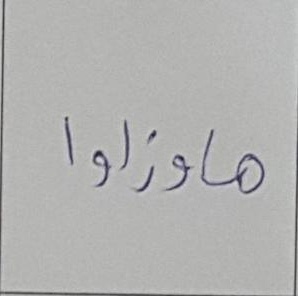 هاوزلوا